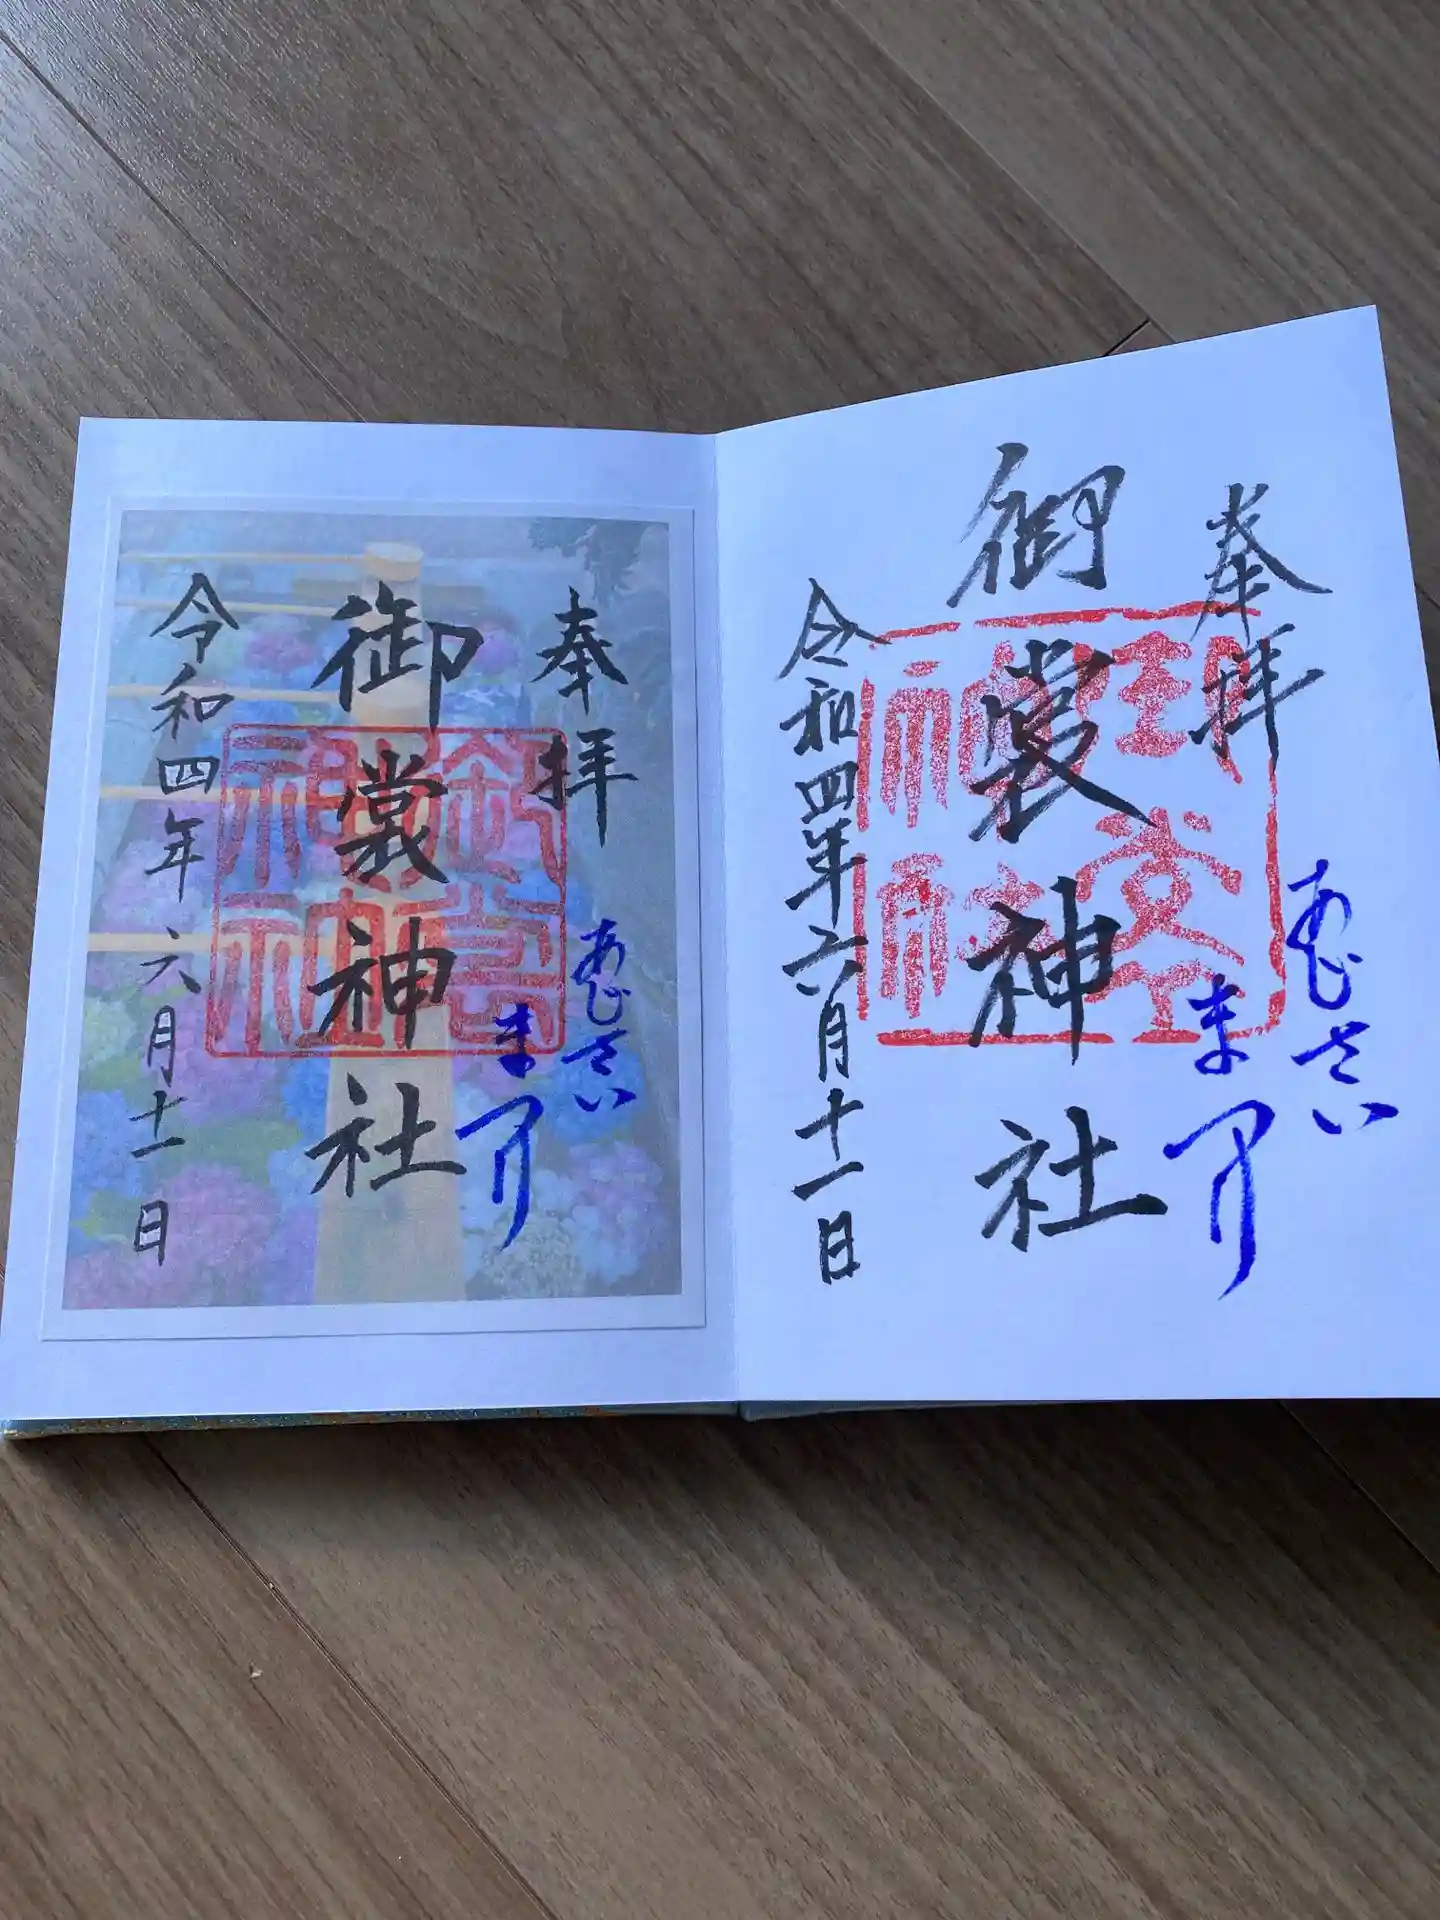 奉拝
あじさい
まつり
御裳神社
令和四年六月十一日
奉拝
あじさい
まつり
御裳神社
令和四年六月十一日